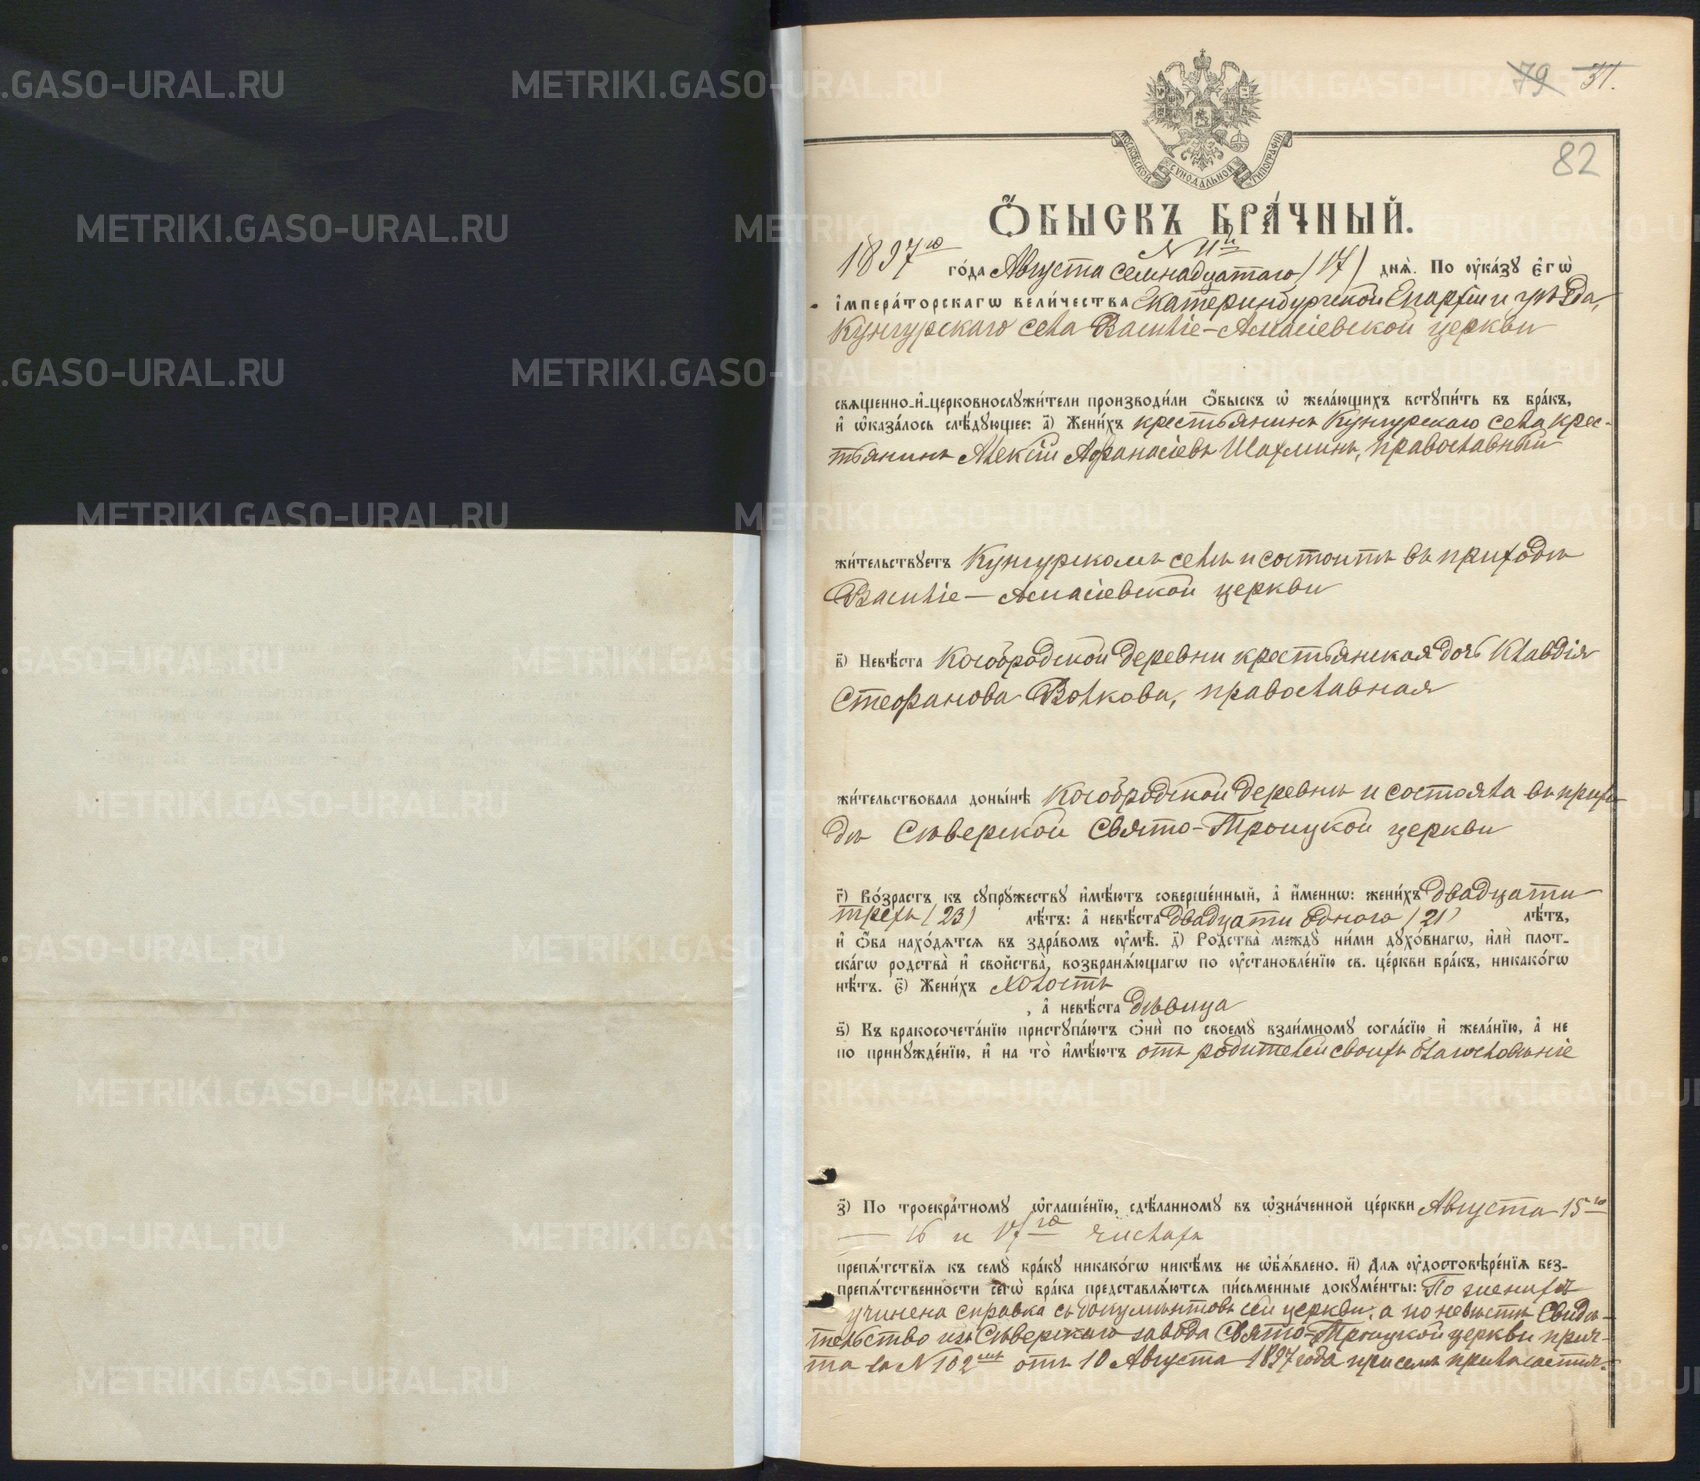 79 31.
82
МОСКОВСКОЙ СѴНОДАЛЬНОЙ ТИПОГРАФІИ
Ѻ҆БЫСКЪ БРА́ЧНЫЙ.
N 11й
1897го го́да Августа семнадцатаго (17) днѧ̀. По ᲂу҆ка́зꙋ є҆гѡ̀
і҆мпера́торскагѡ вели́чества Екатеринбургской Епархіи и уѣзда,
Кунгурскаго села Василіе-Амасіевской церкви
свѧщенно-и҆-церковнослꙋжи́тели производи́ли ѻ҆́быскъ ѡ҆ жела́ющихъ встꙋпи́ть въ бра́къ,
и҆ ѡ҆каза́лось слѣ́дꙋющее: а҃) Жени́хъ крестьянинъ Кунгурскаго села крес-
тьянинъ Алексій Афанасіевъ Шахминъ, православный
жи́тельствꙋетъ Кунгурскомъ селѣ и состоитъ въ приходѣ
Василіе-Амасіевской церкви
в҃) Невѣ́ста Кособродской деревни крестьянская дочь Клавдія
Стефанова Волкова, православная
жи́тельствовала доны́нѣ Кособродской деревнѣ и состояла въ прихо-
дѣ Сѣверской Свято-Троицкой церкви
г҃) Во́зрастъ къ сꙋпрꙋ́жествꙋ и҆мѣ́ютъ соверше́нный, а҆ и҆́меннѡ: жени́хъ двадцати
трехъ (23) лѣ́тъ: а҆ невѣ́ста двадцати одного (21) лѣ́тъ,
и҆ ѻ҆́ба нахо́дѧтсѧ въ здра́вомъ ᲂу҆мѣ̀. д҃) Родства̀ междꙋ̀ ни́ми дꙋхо́внагѡ, и҆лѝ плот-
ска́гѡ родства̀ и҆ свойства̀, возбранѧ́ющагѡ по ᲂу҆становле́нїю св. це́ркви бра́къ, никако́гѡ
нѣ́тъ. є҃) Жени́хъ холостъ
, а҆ невѣ́ста дѣвица
ѕ҃) Къ бракосочета́нїю пристꙋпа́ютъ ѻ҆нѝ по своемꙋ̀ взаи́мномꙋ согла́сїю и҆ жела́нїю, а҆ не
по принꙋжде́нїю, и҆ на то̀ и҆мѣ́ютъ отъ родителей своихъ благословеніе
з҃) По троекра́тномꙋ ѡ҆глаше́нїю, сдѣ́ланномꙋ въ ѡ҆зна́ченной це́ркви Августа 15го
— 16 и 17го числахъ
препѧ́тствїѧ къ семꙋ̀ бра́кꙋ никако́гѡ никѣ́мъ не ѡ҆б̾ѧ́влено. и҃) Длѧ ᲂу҆достовѣре́нїѧ без-
препѧ́тственности сегѡ̀ бра́ка представлѧ́ютсѧ пи́сьменные докꙋме́нты: По женихѣ
учинена справка съ документовъ сей церкви, а по невѣстѣ Свидѣ-
тельство изъ Сѣверскаго завода Свято-Троицкой церкви прич-
та за N 102мъ отъ 10 Августа 1897 года при семъ прилагается.